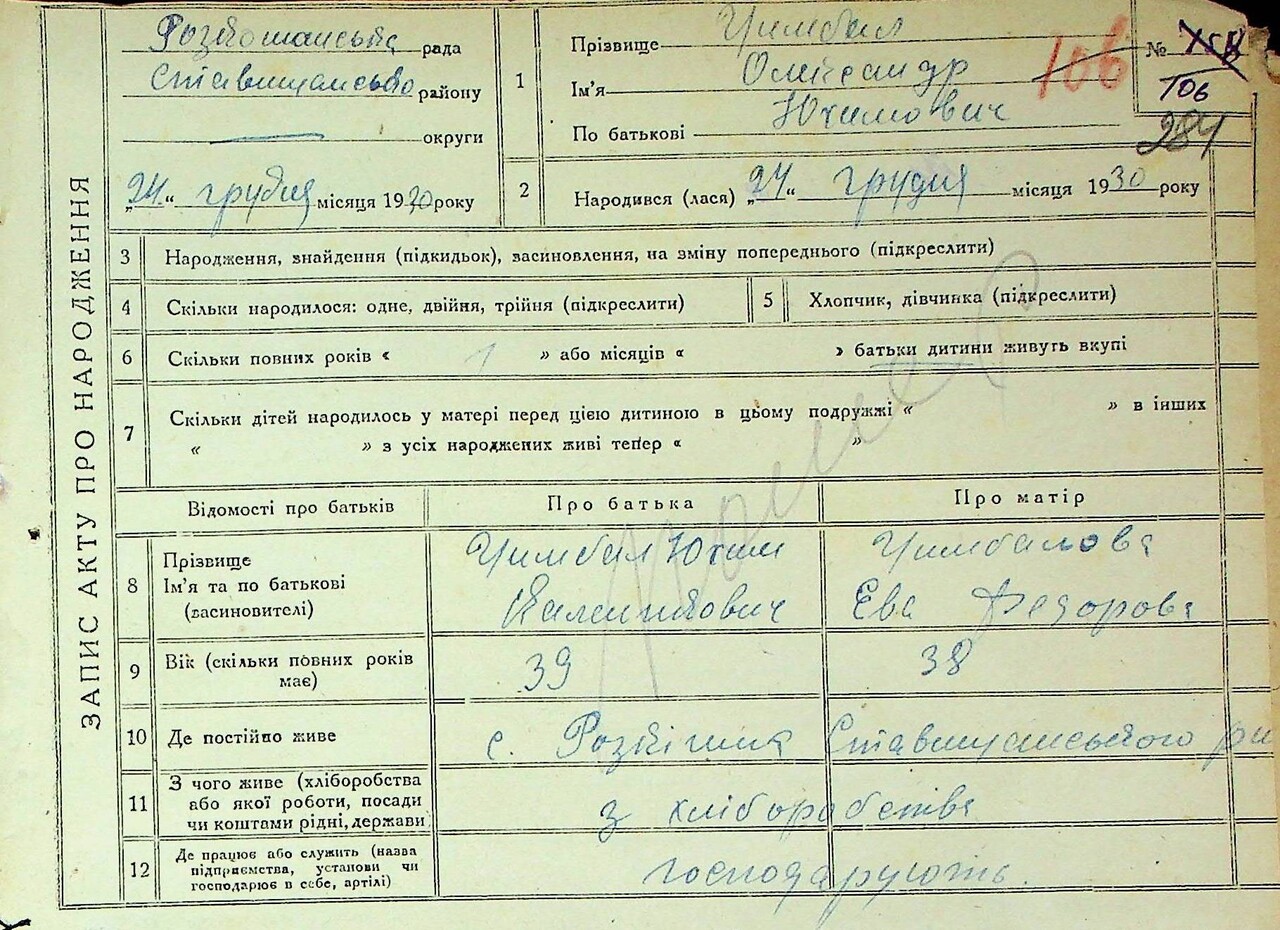 ЗАПИС АКТУ ПРО НАРОДЖЕННЯ
рада
району
округи
„24“ грудня місяця 1930 року
1
Прізвище Цимбал
Ім'я Олександр
По батькові Юхимович
106
№
106
284
2
Народився (лася) „24“ грудня місяця 1930 року
3 Народження, знайдення (підкидьок), васиновлення, на зміну попереднього (підкреслити)
4 Скільки народилося: одне, двійня, трійня (підкреслити)
5 Хлопчик, дівчинка (підкреслити)
6 Скільки повних років « 1 » або місяців « » батьки дитини живуть вкупі
7 Скільки дітей народилось у матері перед цією дитиною в цьому подружжі « » в інших
« » з усіх народжених живі тепер « »
Відомості про батьків
Про батька
Про матір
8
Прізвище
Ім'я та по батькові
(васиновителі)
Цимбал Юхим
Цимбалова
Ева Федорова
9
Вік (скільки повних років
має)
39
38
10 Де постійно живе
с. Ставищанського
11
З чого живе (хліборобства
або якої роботи, посади
чи коштами рідні, держави
з хліборобства
12
Де працює або служить (назва
підприємства, установи чи
господарює в себе, артілі)
господарують.